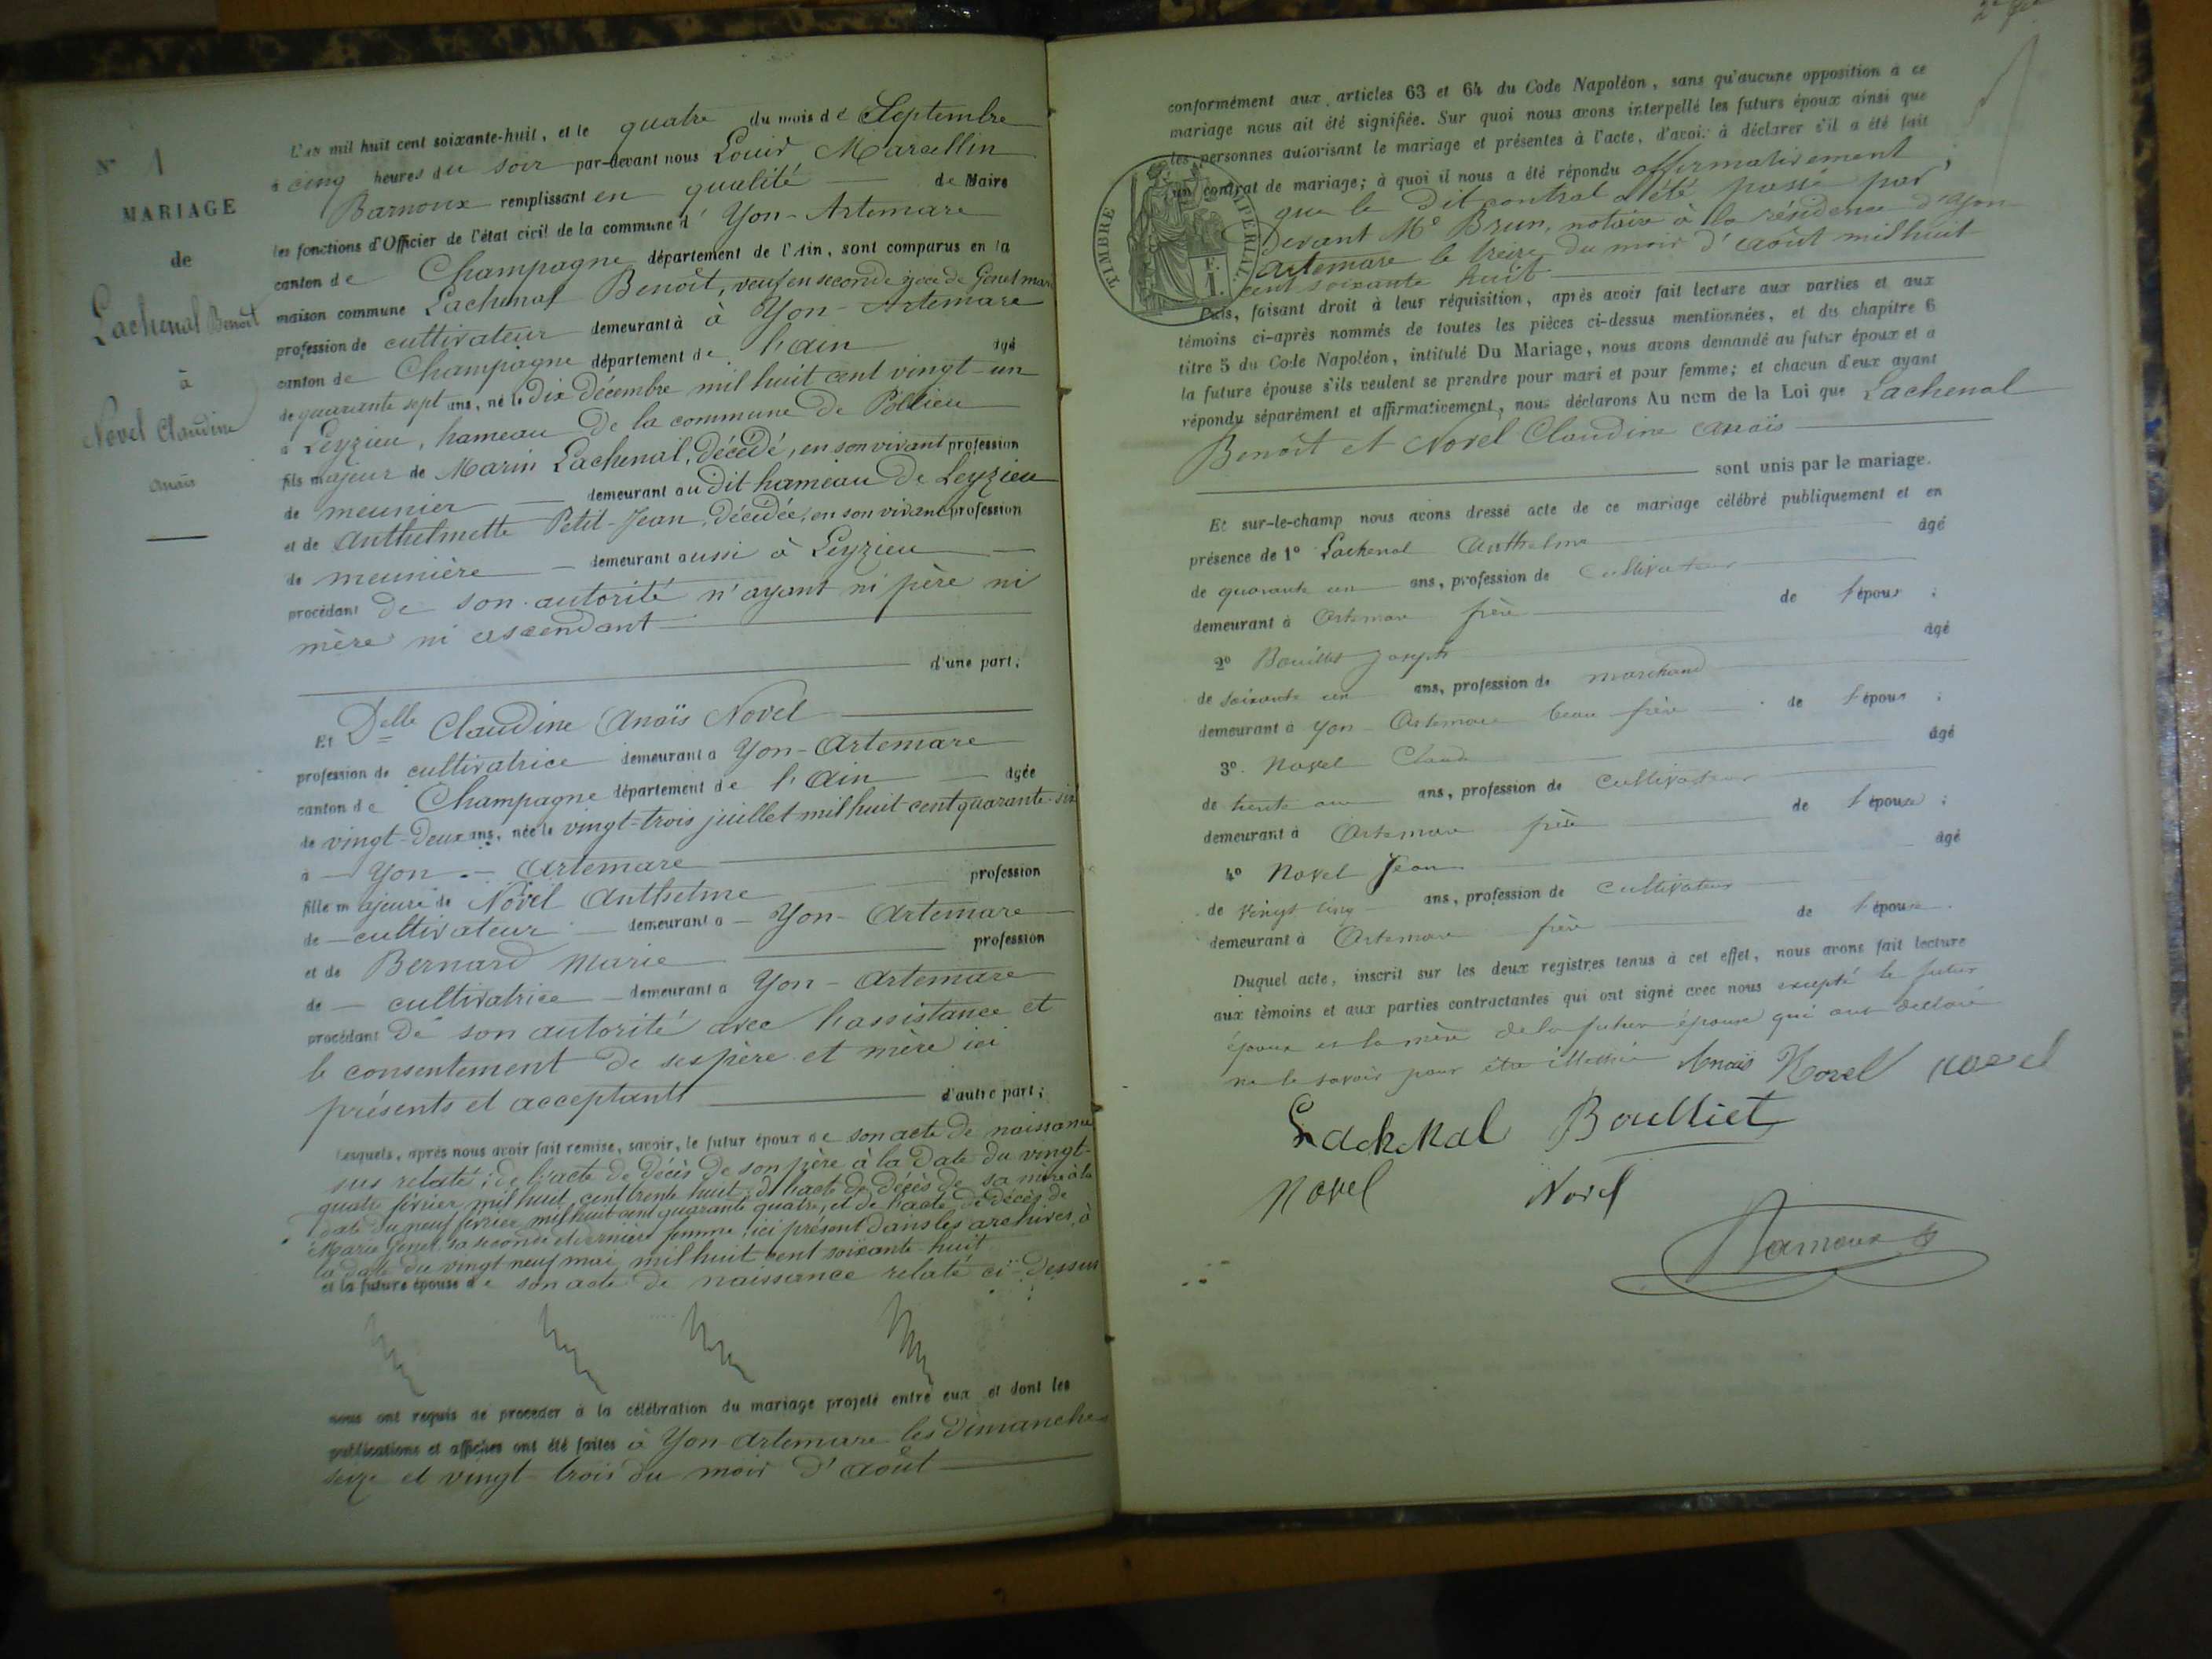 N° 1
MARIAGE
de
Lachenal Benoît
à
Novel Claudine
Anaïs
L'an mil huit cent soixante-huit, et le quatre du mois de Septembre
à cinq heures du soir par-devant nous Louis Marcellin
Barnoux remplissant en qualité de Maire
les fonctions d'Officier de l'état civil de la commune d' Yon-Artemare
canton de Champagne département de l'Ain, sont comparus en la
maison commune Lachenal Benoît, veuf en seconde de Genet marie
profession de cultivateur demeurant à à Yon-Artemare
canton de Champagne département de l'ain âgé
de quarante sept ans, né le dix décembre mil huit cent vingt-un
à Leyzieu, hameau de la commune de Pollieu
fils majeur de Marin Lachenal, décédé, en son vivant profession
de meunier demeurant au dit hameau de Leyzieu
et de Anthelmette Petit-Jean, décédée, en son vivant profession
de meunière demeurant aussi à Leyzieu
procédant de son autorité n'ayant ni père ni
mère ni ascendant
d'une part;
Et Delle Claudine Anaïs Novel
profession de cultivatrice demeurant à Yon-Artemare
canton de Champagne département de l'Ain âgée
de vingt-deux ans, née le vingt-trois juillet mil huit cent quarante-six
à Yon-Artemare
fille majeure de Novel Anthelme profession
de cultivateur demeurant à Yon-Artemare
et de Bernard Marie profession
de cultivatrice demeurant à Yon-Artemare
procédant de son autorité avec l'assistance et
le consentement de ses père et mère ici
présents et acceptants d'autre part;
Lesquels, après nous avoir fait remise, savoir, le futur époux de son acte de naissance
sus relaté; de l'acte de décès de son père à la date du vingt-
quatre février mil huit cent trente huit, de l'acte de décès de sa mère à la
date du neuf février mil huit cent quarante quatre, et de l'acte de décès de
Marie Genet sa seconde et dernière femme, ici présent dans les archives, à
la date du vingt neuf mai mil huit cent soixante-huit
et la future épouse de son acte de naissance relaté ci-dessus
nous ont requis de procéder à la célébration du mariage projeté entre eux et dont les
publications et affiches ont été faites à Yon-Artemare les dimanches
seize et vingt-trois du mois d'août
conformément aux articles 63 et 64 du Code Napoléon, sans qu'aucune opposition à ce
mariage nous ait été signifiée. Sur quoi nous avons interpellé les futurs époux ainsi que
les personnes autorisant le mariage et présentes à l'acte, d'avoir à déclarer s'il a été fait
un contrat de mariage; à quoi il nous a été répondu affirmativement,
que le dit contrat a été passé par
devant Me Brun, notaire à la résidence d'Yon
Artemare le treize du mois d'août mil huit
cent soixante huit
TIMBRE IMPERIAL
F.
1.
Puis, faisant droit à leur réquisition, après avoir fait lecture aux parties et aux
témoins ci-après nommés de toutes les pièces ci-dessus mentionnées, et du chapitre 6
titre 5 du Code Napoléon, intitulé Du Mariage, nous avons demandé au futur époux et à
la future épouse s'ils veulent se prendre pour mari et pour femme; et chacun d'eux ayant
répondu séparément et affirmativement, nous déclarons Au nom de la Loi que Lachenal
Benoît et Novel Claudine Anaïs
sont unis par le mariage.
Et sur-le-champ nous avons dressé acte de ce mariage célébré publiquement et en
présence de 1° Lachenal Anthelme âgé
de quarante un ans, profession de cultivateur
demeurant à Artemare frère de l'époux ;
2° Boulliet Joseph âgé
de soixante un ans, profession de marchand
demeurant à Yon-Artemare beau frère de l'époux ;
3° Novel Claude âgé
de trente ans, profession de cultivateur
demeurant à Artemare frère de l'épouse ;
4° Novel Jean âgé
de vingt cinq ans, profession de cultivateur
demeurant à Artemare frère de l'épouse.
Duquel acte, inscrit sur les deux registres tenus à cet effet, nous avons fait lecture
aux témoins et aux parties contractantes qui ont signé avec nous excepté le futur
époux et la mère de la future épouse qui ont déclaré
ne le savoir pour être illettrés Anaïs Novel novel
Lachenal Boulliet
Novel Novel
Barnoux